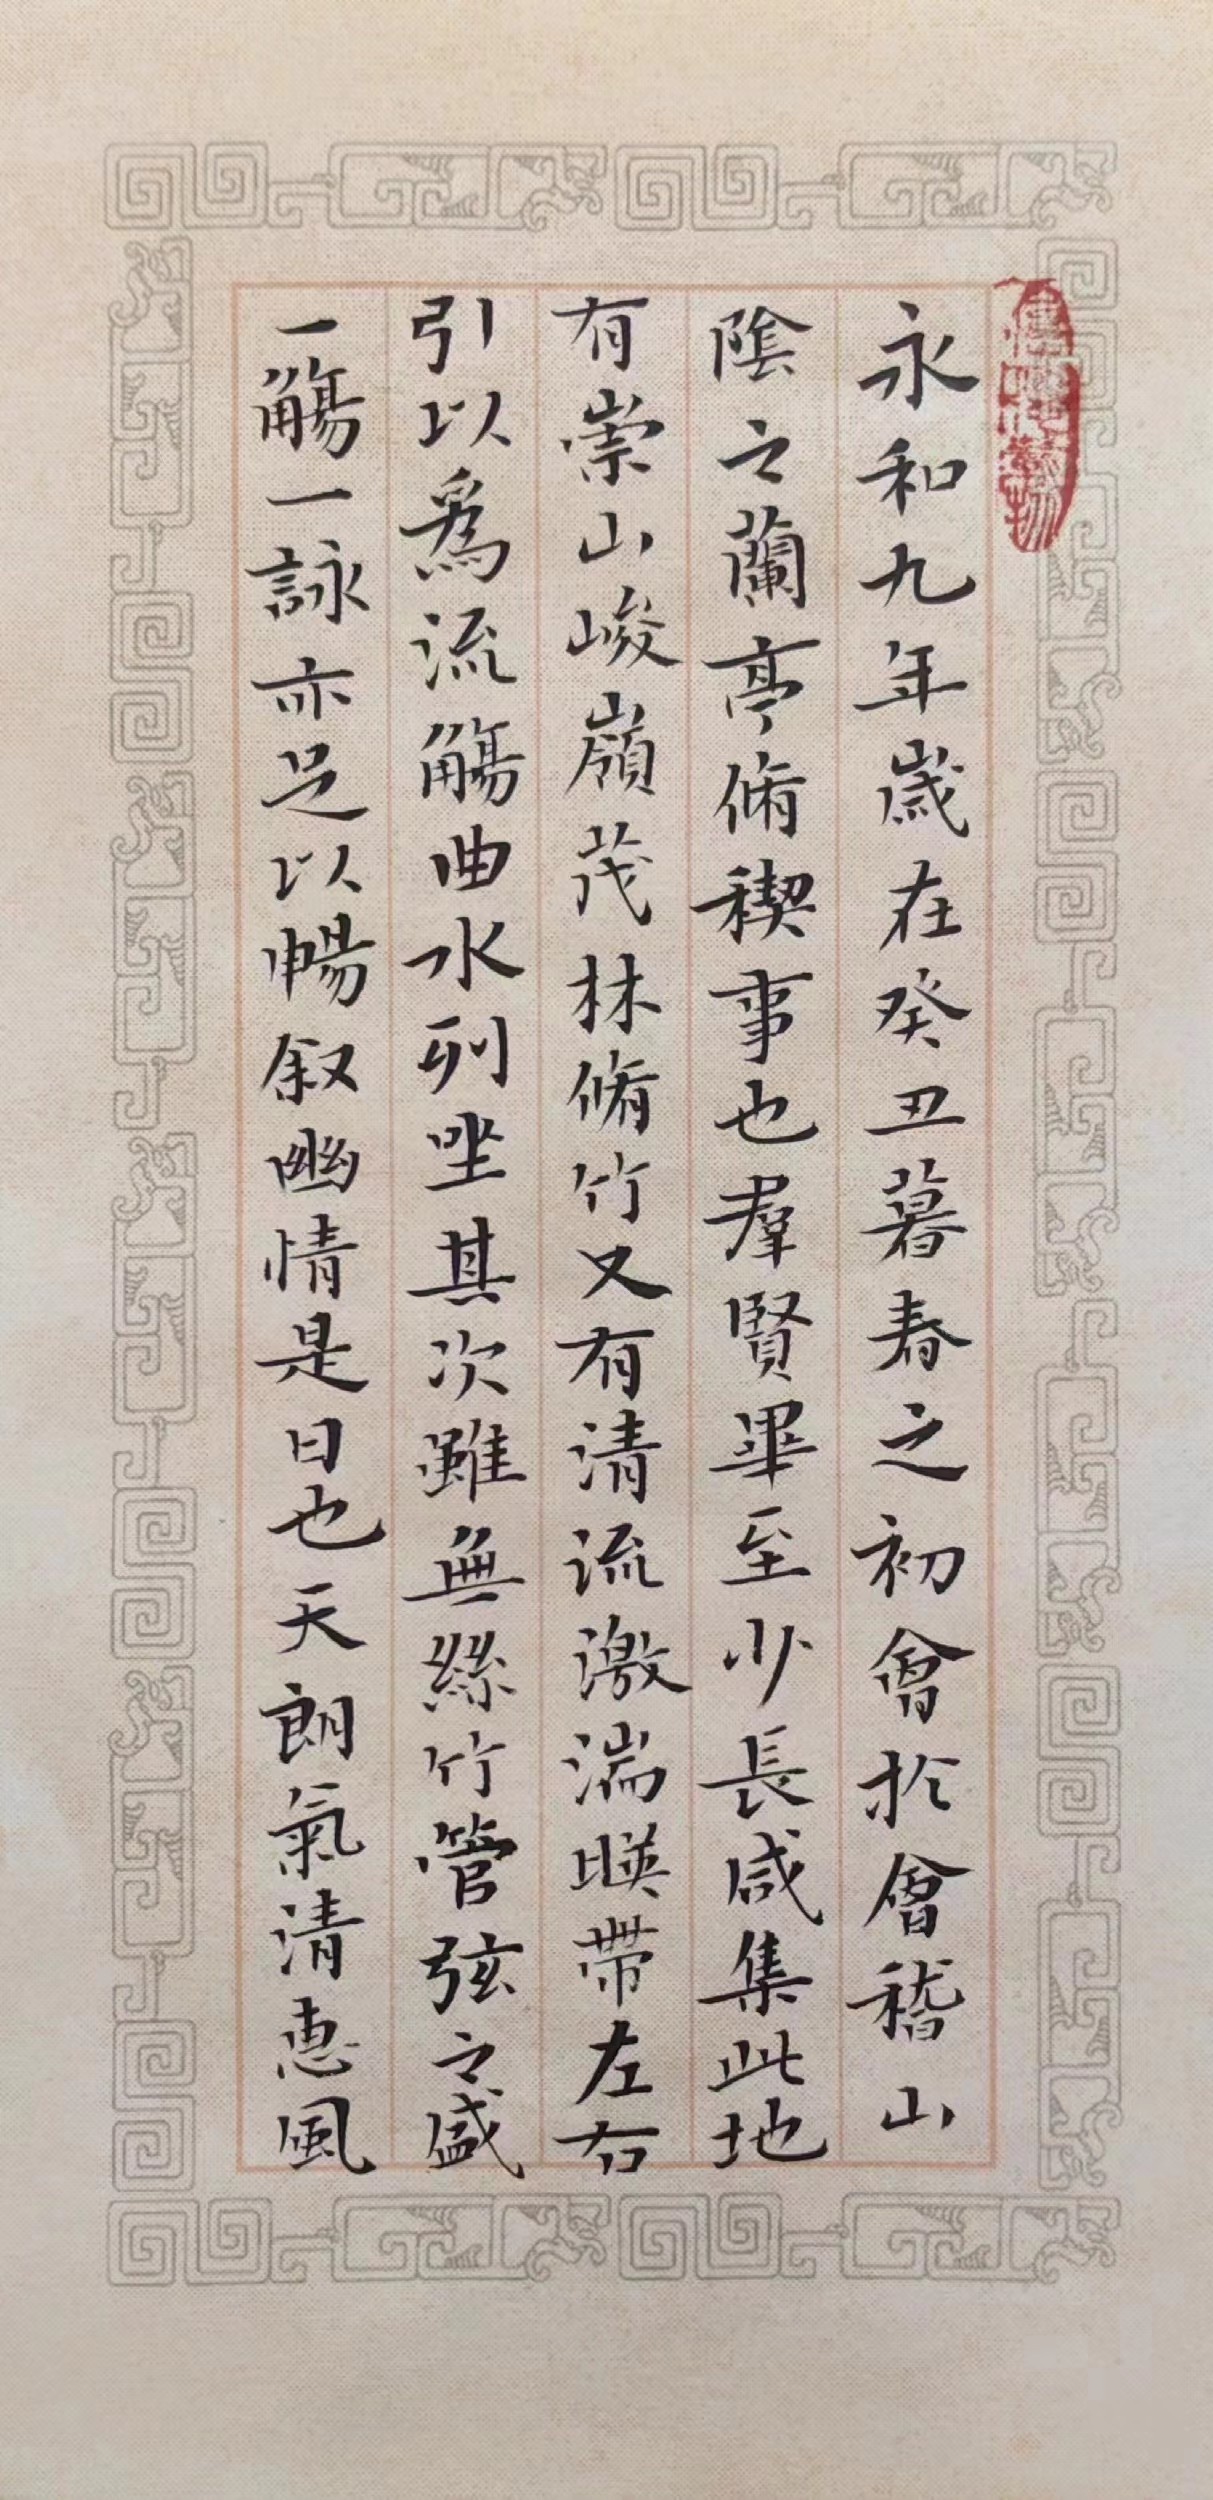 永和九年歲在癸丑暮春之初會於會稽山
陰之蘭亭脩稧事也羣賢畢至少長咸集此地
有崇山峻嶺茂林脩竹又有清流激湍暎帶左右
引以為流觴曲水列坐其次雖無絲竹管弦之盛
一觴一詠亦足以暢叙幽情是日也天朗氣清惠風